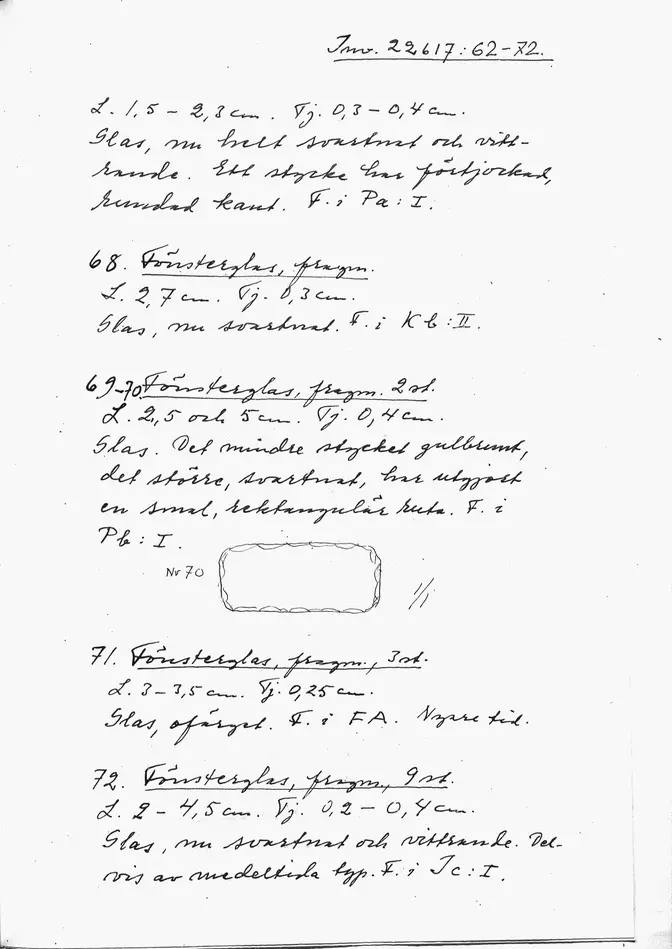 Inv. 22617:62-72.
L. 1,5 - 2,3 cm. Tj. 0,3 - 0,4 cm.
Glas, nu helt svartnat och vitt-
rande. Ett stycke har förtjockad,
rundad kant. F. i Pa: I.
68. Fönsterglas, fragm.
L. 2,7 cm. Tj. 0,3 cm.
Glas, nu svartnat. F. i Kb: II.
69-70 Fönsterglas, fragm. 2 st.
L. 2,5 och 5 cm. Tj. 0,4 cm.
Glas. Det mindre stycket gulbrunt,
det större, svartnat, har utgjort
en smal, rektangulär ruta. F. i
Pb: I.
Nr 70
1/1
71. Fönsterglas, fragm., 3 st.
L. 3 - 3,5 cm. Tj. 0,25 cm.
Glas, ofärgat. F. i FA. Nyare tid.
72. Fönsterglas, fragm., 9 st.
L. 2 - 4,5 cm. Tj. 0,2 - 0,4 cm.
Glas, nu svartnat och vittrande. Del-
vis av medeltida typ. F. i Ic: I.